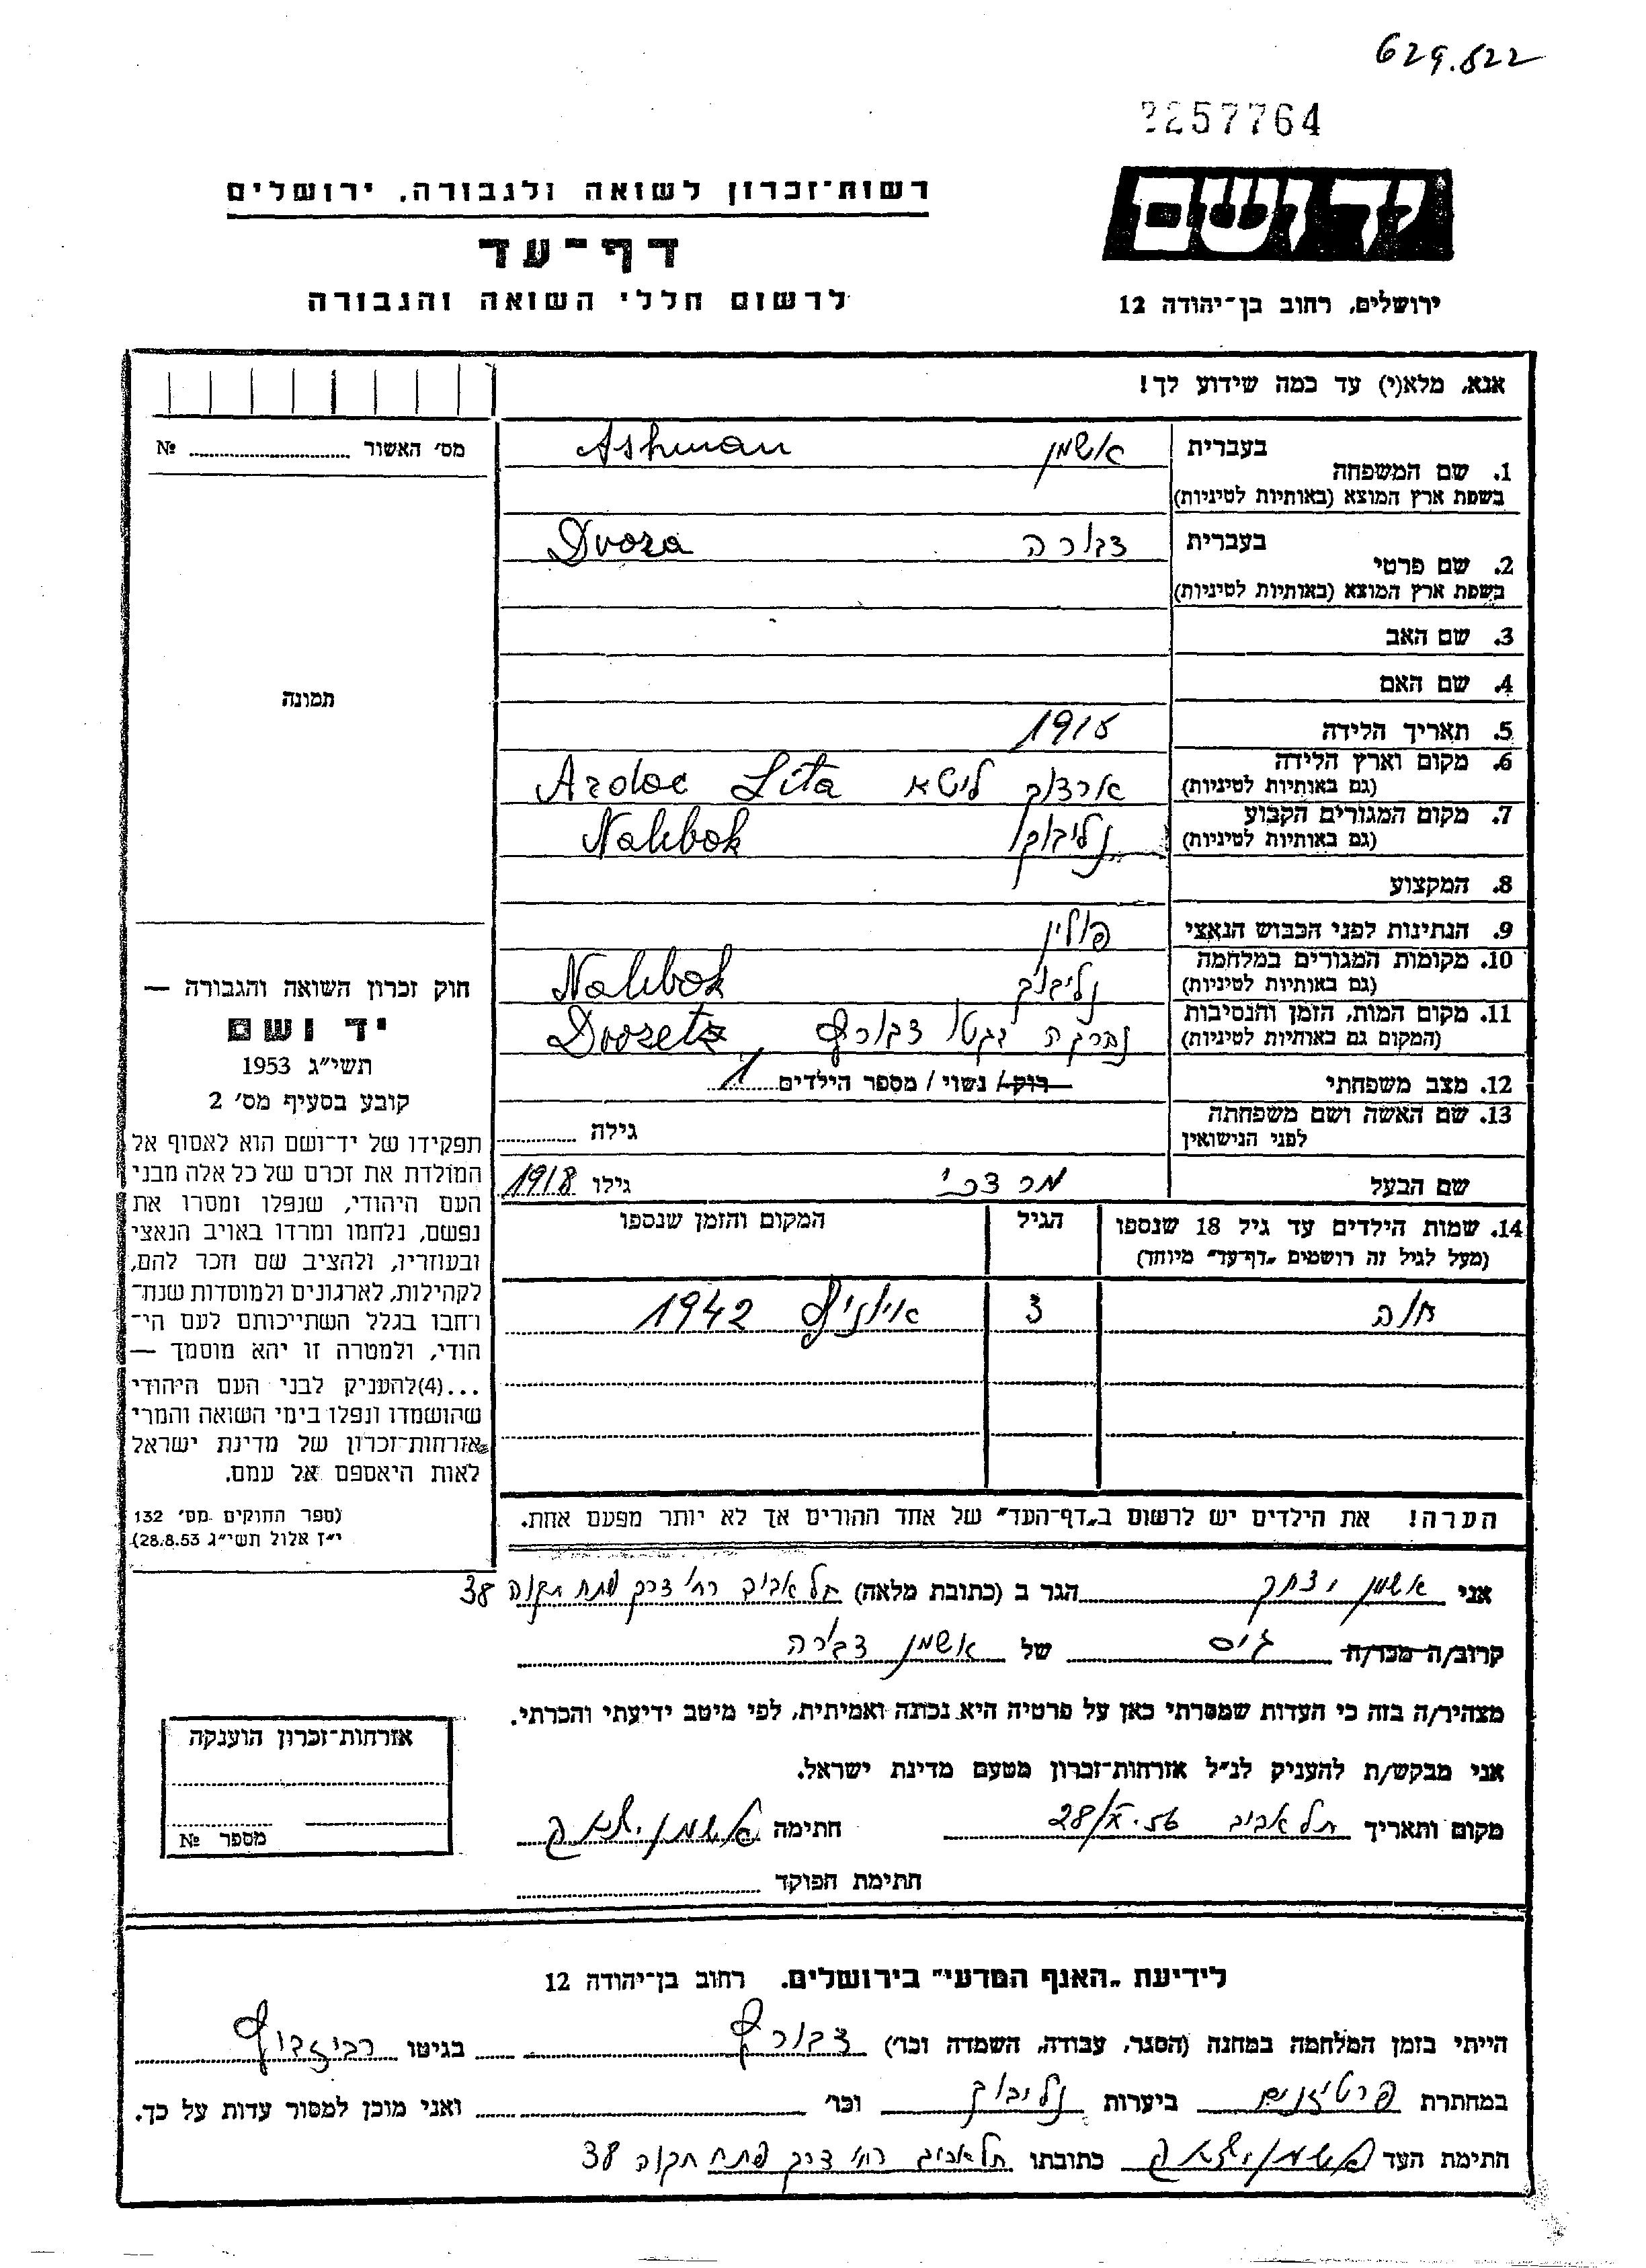 629.822
2257764
יד ושם
ירושלים, רחוב בן־יהודה 12
רשות־זכרון לשואה ולגבורה, ירושלים
דף־עד
לרשום חללי השואה והגבורה
אנא, מלא(י) עד כמה שידוע לך!
מס׳ האשור № ........
1. שם המשפחה בעברית אשמן Ashman
בשפת ארץ המוצא (באותיות לטיניות)
2. שם פרטי בעברית דבורה Dvora
בשפת ארץ המוצא (באותיות לטיניות)
3. שם האב
4. שם האם
תמונה
5. תאריך הלידה 1918
6. מקום וארץ הלידה ליטא Lita
(גם באותיות לטיניות)
7. מקום המגורים הקבוע נליבוקי Nalibok
(גם באותיות לטיניות)
8. המקצוע
9. הנתינות לפני הכבוש הנאצי פולין
10. מקומות המגורים במלחמה נליבוק Nalibok
(גם באותיות לטיניות)
11. מקום המות, הזמן והנסיבות נהרגה בגטו דבורץ Dvoretz
(המקום גם באותיות לטיניות)
12. מצב משפחתי רוק / נשוי / מספר הילדים 1
13. שם האשה ושם משפחתה
לפני הנישואין גילה ........
שם הבעל מרדכי גילו 1918
14. שמות הילדים עד גיל 18 שנספו הגיל המקום והזמן שנספו
(מעל לגיל זה רושמים „דף־עד" מיוחד)
חוה 3 1942
הערה! את הילדים יש לרשום ב„דף־העד" של אחד ההורים אך לא יותר מפעם אחת.
חוק זכרון השואה והגבורה —
יד ושם
תשי״ג 1953
קובע בסעיף מס׳ 2
תפקידו של יד־ושם הוא לאסוף אל
המולדת את זכרם של כל אלה מבני
העם היהודי, שנפלו ומסרו את
נפשם, נלחמו ומרדו באויב הנאצי
ובעוזריו, ולהציב שם וזכר להם,
לקהילות, לארגונים ולמוסדות שנח־
רבו בגלל השתייכותם לעם הי־
הודי, ולמטרה זו יהא מוסמך —
...(4)להעניק לבני העם היהודי
שהושמדו ונפלו בימי השואה והמרי
אזרחות־זכרון של מדינת ישראל
לאות היאספם אל עמם.
(ספר החוקים מס׳ 132
י״ז אלול תשי״ג 28.8.53)
אני אשמן יצחק הגר ב (כתובת מלאה) תל אביב רח׳ דרך פתח תקוה 38
קרוב/ה מכר/ה גיס של אשמן דבורה
מצהיר/ה בזה כי העדות שמסרתי כאן על פרטיה היא נכונה ואמיתית, לפי מיטב ידיעתי והכרתי.
אני מבקש/ת להעניק לנ״ל אזרחות־זכרון מטעם מדינת ישראל.
מקום ותאריך תל אביב 28/X.56 חתימה אשמן יצחק
חתימת הפוקד
אזרחות־זכרון הוענקה
מספר №
לידיעת „האנף המדעי" בירושלים. רחוב בן־יהודה 12
הייתי בזמן המלחמה במחנה (הסגר, עבודה, השמדה וכו׳) דבורץ בגיטו
במחתרת פרטיזנים ביערות נליבוק וכו׳ ואני מוכן למסור עדות על כך.
חתימת העד אשמן יצחק כתובתו תל אביב רח׳ דרך פתח תקוה 38